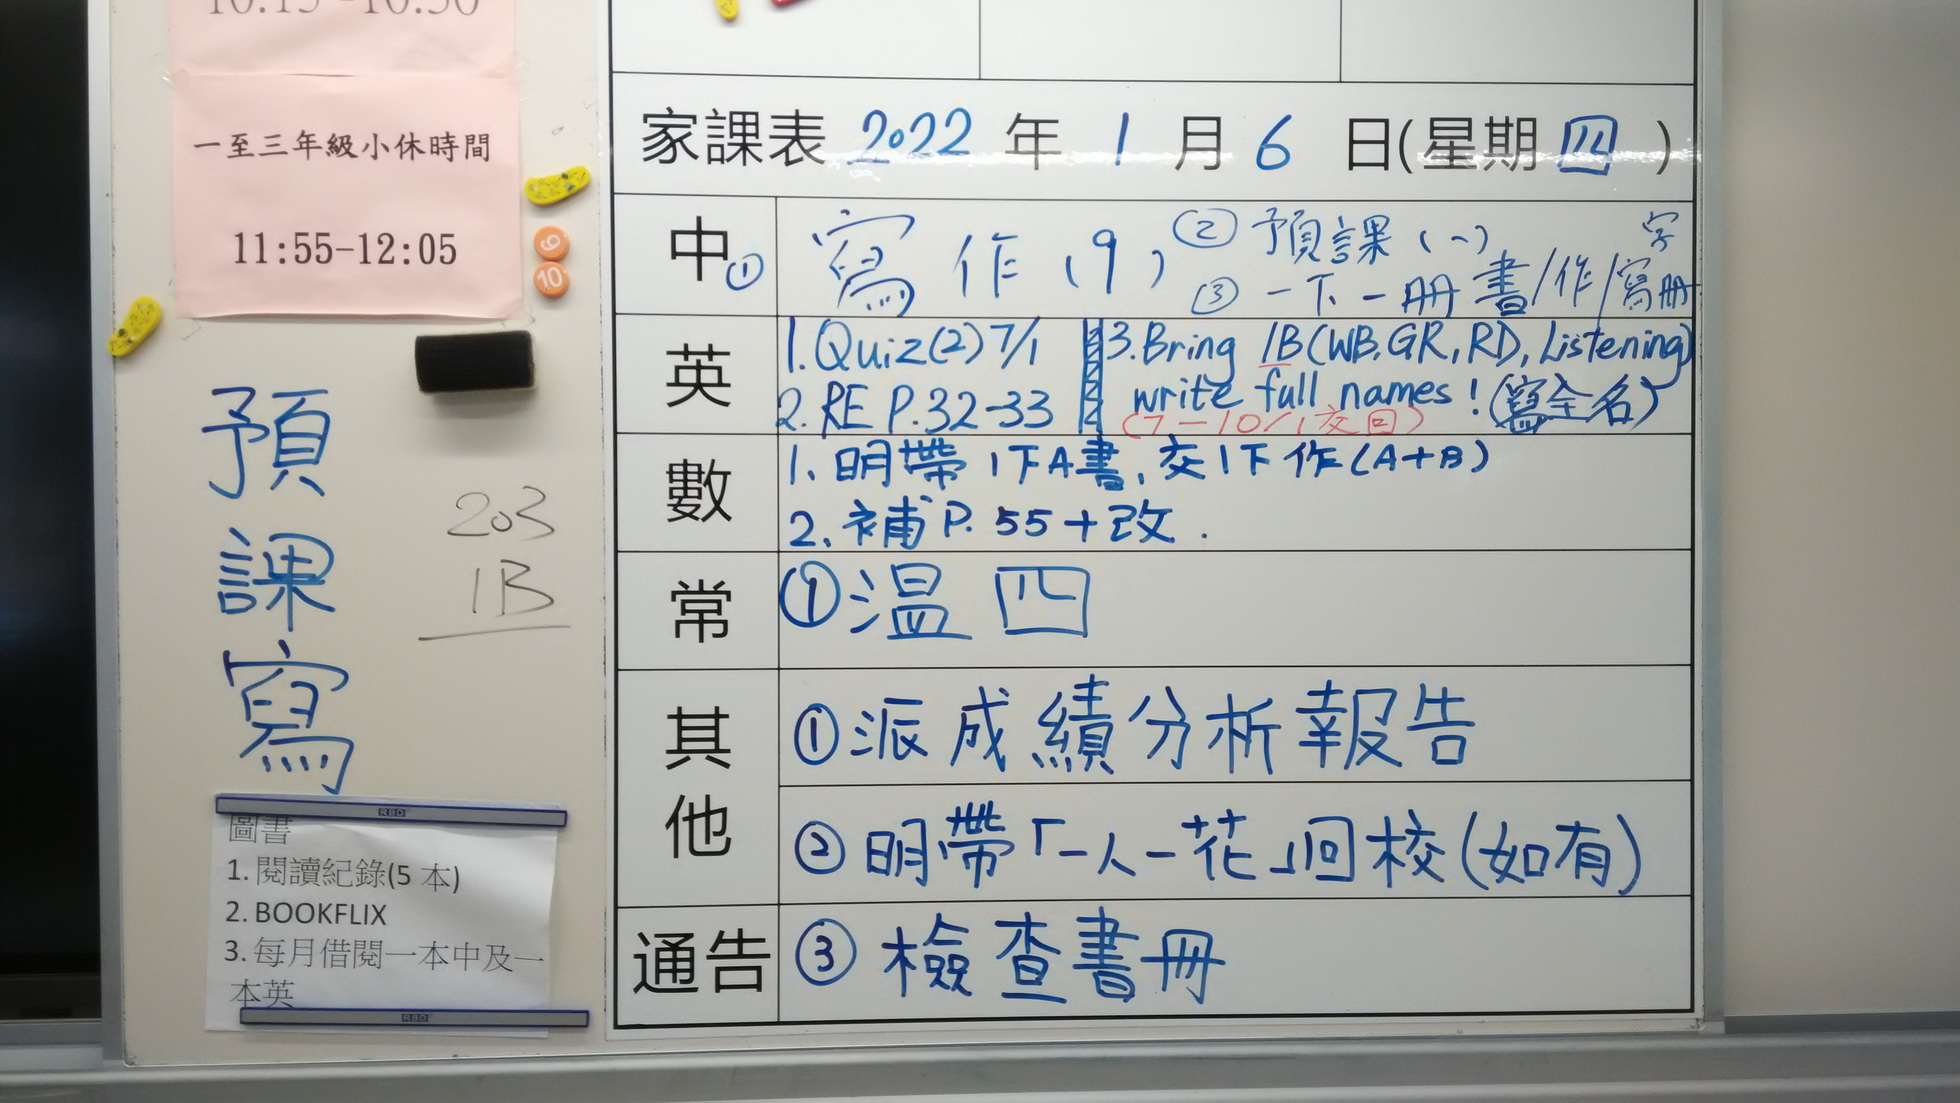 10:15-10:30
一至三年級小休時間
11:55-12:05
9
10
預課寫
203
1B
RBD
圖書
1. 閱讀紀錄(5 本)
2. BOOKFLIX
3. 每月借閱一本中及一
本英
RBD
家課表 2022 年 1 月 6 日(星期四)
中 ① 寫作(9) ② 預課(一)
③ 一下一冊書/作/寫字冊
英 1. Quiz(2) 7/1
2. RE P.32-33
3. Bring 1B (WB, GR, RD, Listening)
write full names! (寫全名)
(7-10/1 交回)
數 1. 明帶1下A書, 交1下作(A+B)
2. 補P.55+改.
常 ①溫四
其他 ①派成績分析報告
②明帶「一人一花」回校(如有)
通告 ③檢查書冊